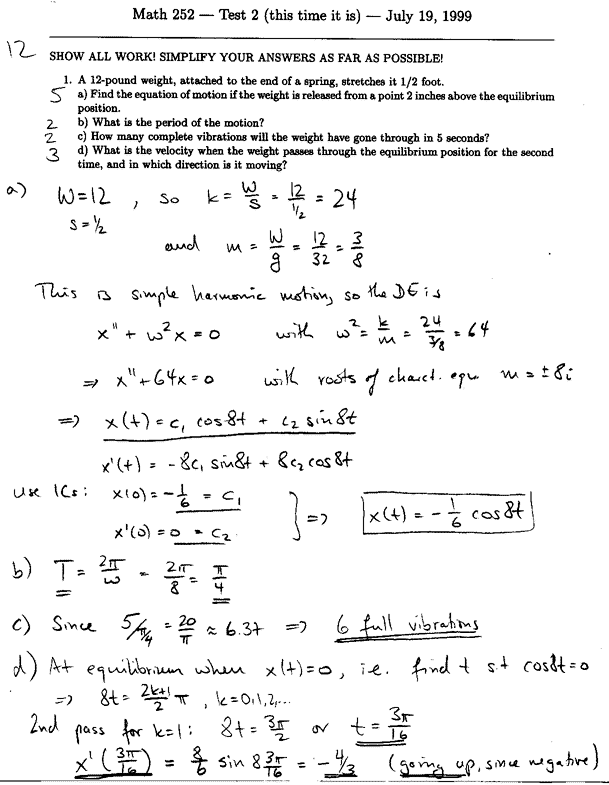 Math 252 — Test 2 (this time it is) — July 19, 1999
12 SHOW ALL WORK! SIMPLIFY YOUR ANSWERS AS FAR AS POSSIBLE!
1. A 12-pound weight, attached to the end of a spring, stretches it 1/2 foot.
5 a) Find the equation of motion if the weight is released from a point 2 inches above the equilibrium
position.
2 b) What is the period of the motion?
2 c) How many complete vibrations will the weight have gone through in 5 seconds?
3 d) What is the velocity when the weight passes through the equilibrium position for the second
time, and in which direction is it moving?
a) W=12 , so k = W/s = 12/½ = 24
s = ½
and m = W/g = 12/32 = 3/8
This is simple harmonic motion, so the DE is
x'' + ω²x = 0 with ω² = k/m = 24/⅜ = 64
⇒ x''+64x=0 with roots of charct. equ m = ±8i
⇒ x(t) = c₁ cos8t + c₂ sin8t
x'(t) = -8c₁ sin8t + 8c₂ cos8t
use ICs: x(0) = -1/6 = c₁
x'(0) = 0 = c₂ } ⇒ x(t) = -1/6 cos8t
b) T = 2π/ω = 2π/8 = π/4
c) Since 5/π/4 = 20/π ≈ 6.37 ⇒ 6 full vibrations
d) At equilibrium when x(t)=0, i.e. find t s.t cos8t=0
⇒ 8t = 2k+1/2 π , k=0,1,2,...
2nd pass for k=1: 8t = 3π/2 or t = 3π/16
x'(3π/16) = 8/6 sin 8 3π/16 = -4/3 (going up, since negative)